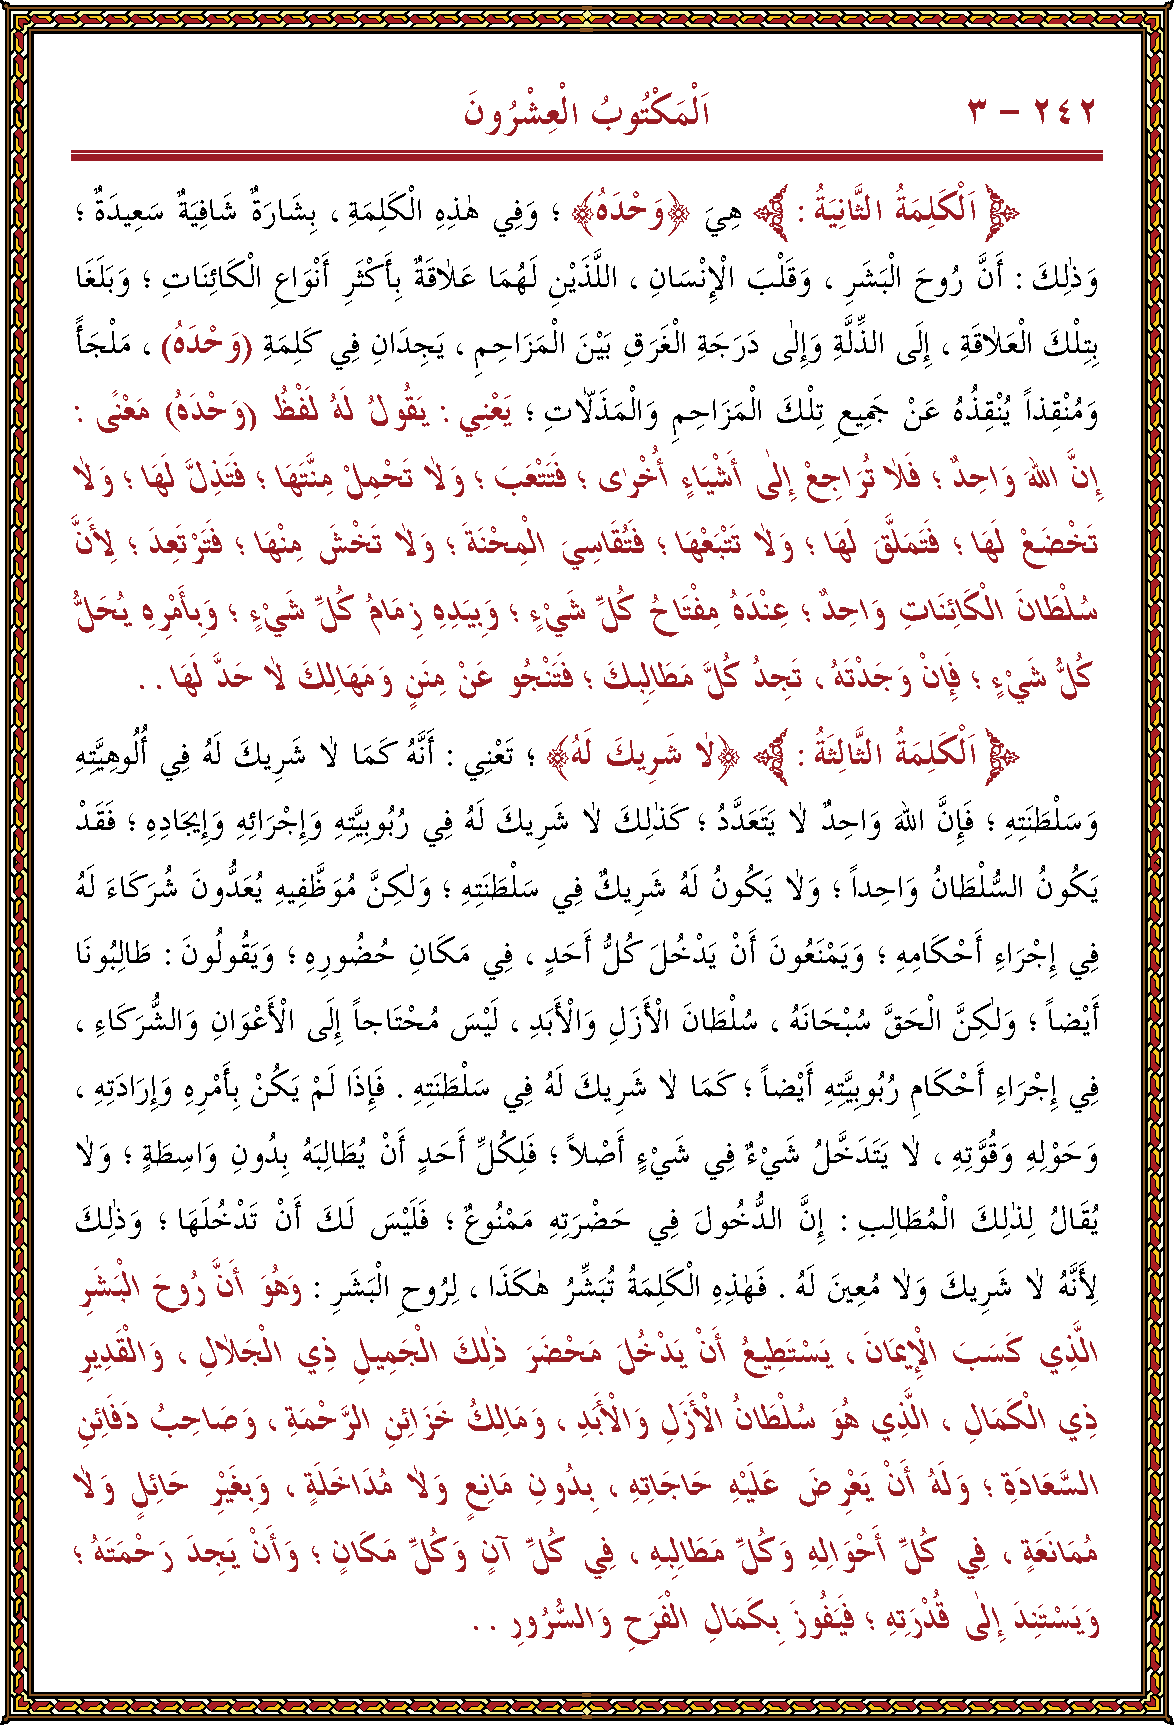 ٢٤٢ - ٣ اَلْمَكْتُوبُ الْعِشْرُونَ
اَلْكَلِمَةُ الثَّانِيَةُ : هِيَ ﴿وَحْدَهُ﴾ ؛ وَفِي هٰذِهِ الْكَلِمَةِ ، بِشَارَةٌ شَافِيَةٌ سَعِيدَةٌ ؛
وَذٰلِكَ : أَنَّ رُوحَ الْبَشَرِ ، وَقَلْبَ الْإِنْسَانِ ، اللَّذَيْنِ لَهُمَا عَلَاقَةٌ بِأَكْثَرِ أَنْوَاعِ الْكَائِنَاتِ ؛ وَبَلَغَا
بِتِلْكَ الْعَلَاقَةِ ، إِلَى الذِّلَّةِ وَإِلٰى دَرَجَةِ الْغَرَقِ بَيْنَ الْمَزَاحِمِ ، يَجِدَانِ فِي كَلِمَةِ (وَحْدَهُ) ، مَلْجَأً
وَمُنْقِذاً يُنْقِذُهُ عَنْ جَمِيعِ تِلْكَ الْمَزَاحِمِ وَالْمَذَلّاتِ ؛ يَعْنِي : يَقُولُ لَهُ لَفْظُ (وَحْدَهُ) مَعْنًى :
إِنَّ اللهَ وَاحِدٌ ؛ فَلَا تُرَاجِعْ إِلٰى أَشْيَاءٍ أُخْرٰى ؛ فَتَتْعَبَ ؛ وَلَا تَحْمِلْ مِنَّتَهَا ؛ فَتَذِلَّ لَهَا ؛ وَلَا
تَخْضَعْ لَهَا ؛ فَتَمَلَّقَ لَهَا ؛ وَلَا تَتْبَعْهَا ؛ فَتُقَاسِيَ الْمِحْنَةَ ؛ وَلَا تَخْشَ مِنْهَا ؛ فَتَرْتَعِدَ ؛ لِأَنَّ
سُلْطَانَ الْكَائِنَاتِ وَاحِدٌ ؛ عِنْدَهُ مِفْتَاحُ كُلِّ شَيْءٍ ؛ وَبِيَدِهِ زِمَامُ كُلِّ شَيْءٍ ؛ وَبِأَمْرِهِ يُحَلُّ
كُلُّ شَيْءٍ ؛ فَإِنْ وَجَدْتَهُ ، تَجِدُ كُلَّ مَطَالِبِكَ ؛ فَتَنْجُو عَنْ مِنَنٍ وَمَهَالِكَ لَا حَدَّ لَهَا . .
اَلْكَلِمَةُ الثَّالِثَةُ : ﴿لَا شَرِيكَ لَهُ﴾ ؛ تَعْنِي : أَنَّهُ كَمَا لَا شَرِيكَ لَهُ فِي أُلُوهِيَّتِهِ
وَسَلْطَنَتِهِ ؛ فَإِنَّ اللهَ وَاحِدٌ لَا يَتَعَدَّدُ ؛ كَذٰلِكَ لَا شَرِيكَ لَهُ فِي رُبُوبِيَّتِهِ وَإِجْرَائِهِ وَإِيجَادِهِ ؛ فَقَدْ
يَكُونُ السُّلْطَانُ وَاحِداً ؛ وَلَا يَكُونُ لَهُ شَرِيكٌ فِي سَلْطَنَتِهِ ؛ وَلٰكِنَّ مُوَظَّفِيهِ يُعَدُّونَ شُرَكَاءَ لَهُ
فِي إِجْرَاءِ أَحْكَامِهِ ؛ وَيَمْنَعُونَ أَنْ يَدْخُلَ كُلُّ أَحَدٍ ، فِي مَكَانِ حُضُورِهِ ؛ وَيَقُولُونَ : طَالِبُونَا
أَيْضاً ؛ وَلٰكِنَّ الْحَقَّ سُبْحَانَهُ ، سُلْطَانَ الْأَزَلِ وَالْأَبَدِ ، لَيْسَ مُحْتَاجاً إِلَى الْأَعْوَانِ وَالشُّرَكَاءِ ،
فِي إِجْرَاءِ أَحْكَامِ رُبُوبِيَّتِهِ أَيْضاً ؛ كَمَا لَا شَرِيكَ لَهُ فِي سَلْطَنَتِهِ . فَإِذَا لَمْ يَكُنْ بِأَمْرِهِ وَإِرَادَتِهِ ،
وَحَوْلِهِ وَقُوَّتِهِ ، لَا يَتَدَخَّلُ شَيْءٌ فِي شَيْءٍ أَصْلاً ؛ فَلِكُلِّ أَحَدٍ أَنْ يُطَالِبَهُ بِدُونِ وَاسِطَةٍ ؛ وَلَا
يُقَالُ لِذٰلِكَ الْمُطَالِبِ : إِنَّ الدُّخُولَ فِي حَضْرَتِهِ مَمْنُوعٌ ؛ فَلَيْسَ لَكَ أَنْ تَدْخُلَهَا ؛ وَذٰلِكَ
لِأَنَّهُ لَا شَرِيكَ وَلَا مُعِينَ لَهُ . فَهٰذِهِ الْكَلِمَةُ تُبَشِّرُ هٰكَذَا ، لِرُوحِ الْبَشَرِ : وَهُوَ أَنَّ رُوحَ الْبَشَرِ
الَّذِي كَسَبَ الْإِيمَانَ ، يَسْتَطِيعُ أَنْ يَدْخُلَ مَحْضَرَ ذٰلِكَ الْجَمِيلِ ذِي الْجَلَالِ ، وَالْقَدِيرِ
ذِي الْكَمَالِ ، الَّذِي هُوَ سُلْطَانُ الْأَزَلِ وَالْأَبَدِ ، وَمَالِكُ خَزَائِنِ الرَّحْمَةِ ، وَصَاحِبُ دَفَائِنِ
السَّعَادَةِ ؛ وَلَهُ أَنْ يَعْرِضَ عَلَيْهِ حَاجَاتِهِ ، بِدُونِ مَانِعٍ وَلَا مُدَاخَلَةٍ ، وَبِغَيْرِ حَائِلٍ وَلَا
مُمَانَعَةٍ ، فِي كُلِّ أَحْوَالِهِ وَكُلِّ مَطَالِبِهِ ، فِي كُلِّ آنٍ وَكُلِّ مَكَانٍ ؛ وَأَنْ يَجِدَ رَحْمَتَهُ ؛
وَيَسْتَنِدَ إِلٰى قُدْرَتِهِ ؛ فَيَفُوزَ بِكَمَالِ الْفَرَحِ وَالسُّرُورِ . .